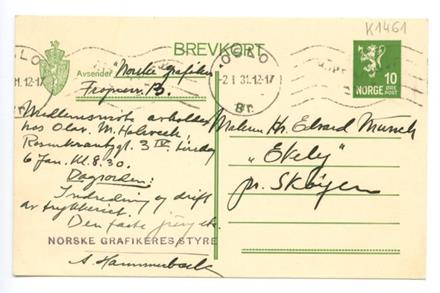 K1461
BREVKORT
OSLO
2.1.31.12-17
Br.
10
NORGE
ØRE
POST
Avsender "Norske grafikere"
Frognerv.
Medlemsmøte avholdes
hos Olav M. Holwech,
Rosenkrantzgt. 3 IV tirsdag
6 Jan. kl. 8.30.
Dagsorden:
Indredning og drift
av trykkeriet.
Den faste jury etc.
NORSKE GRAFIKERES STYRE
Maleren Hr. Edvard Munch
"Ekely"
pr. Skøyen